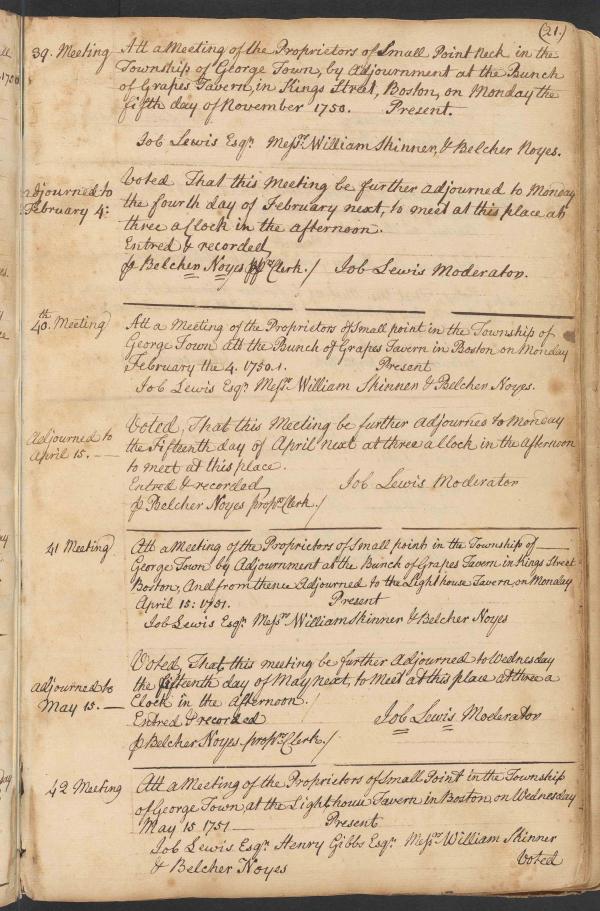 (21.)
39. Meeting
Att a Meeting of the Proprietors of Small Point Neck in the
Township of George Town, by Adjournment at the Bunch
of Grapes Tavern, in Kings Street, Boston, on Monday the
fifth day of November 1750. Present.
Job Lewis Esqr. Messrs. William Skinner, & Belcher Noyes.
Adjourned to
February 4:
Voted That this Meeting be further adjourned to Monday
the fourth day of February next, to meet at this place at
three a Clock in the afternoon.
Entred & recorded
p Belcher Noyes Clerk./ Job Lewis Moderator.
40th. Meeting
Att a Meeting of the Proprietors of Small point in the Township of
George Town att the Bunch of Grapes Tavern in Boston on Monday
February the 4. 1750.1. Present
Job Lewis Esqr. Messrs. William Skinner & Belcher Noyes.
Adjourned to
April 15. —
Voted, That this Meeting be further adjourned to Monday
the Fifteenth day of April next at three a Clock in the afternoon
to meet at this place.
Entred & recorded Job Lewis Moderator
p Belcher Noyes proprs Clerk./
41 Meeting
Att a Meeting of the Proprietors of Small point in the Township of —
George Town by Adjournment at the Bunch of Grapes Tavern in Kings Street
Boston, And from thence Adjourned to the Light house Tavern, on Monday
April 15: 1751. Present
Job Lewis Esqr. Messrs. William Skinner & Belcher Noyes
adjourned to
May 15. —
Voted, That this meeting be further adjourned to Wednesday
the fifteenth day of May next, to Meet at this place at three a
Clock in the afternoon./
Entred & recorded Job Lewis Moderator
p Belcher Noyes proprs Clerk./
42 Meeting
Att a Meeting of the Proprietors of Small Point in the Township
of George Town at the Light house Tavern in Boston, on Wednesday
May 15 1751 — Present
Job Lewis Esqr. Henry Gibbs Esqr. Messrs William Skinner
& Belcher Noyes Voted